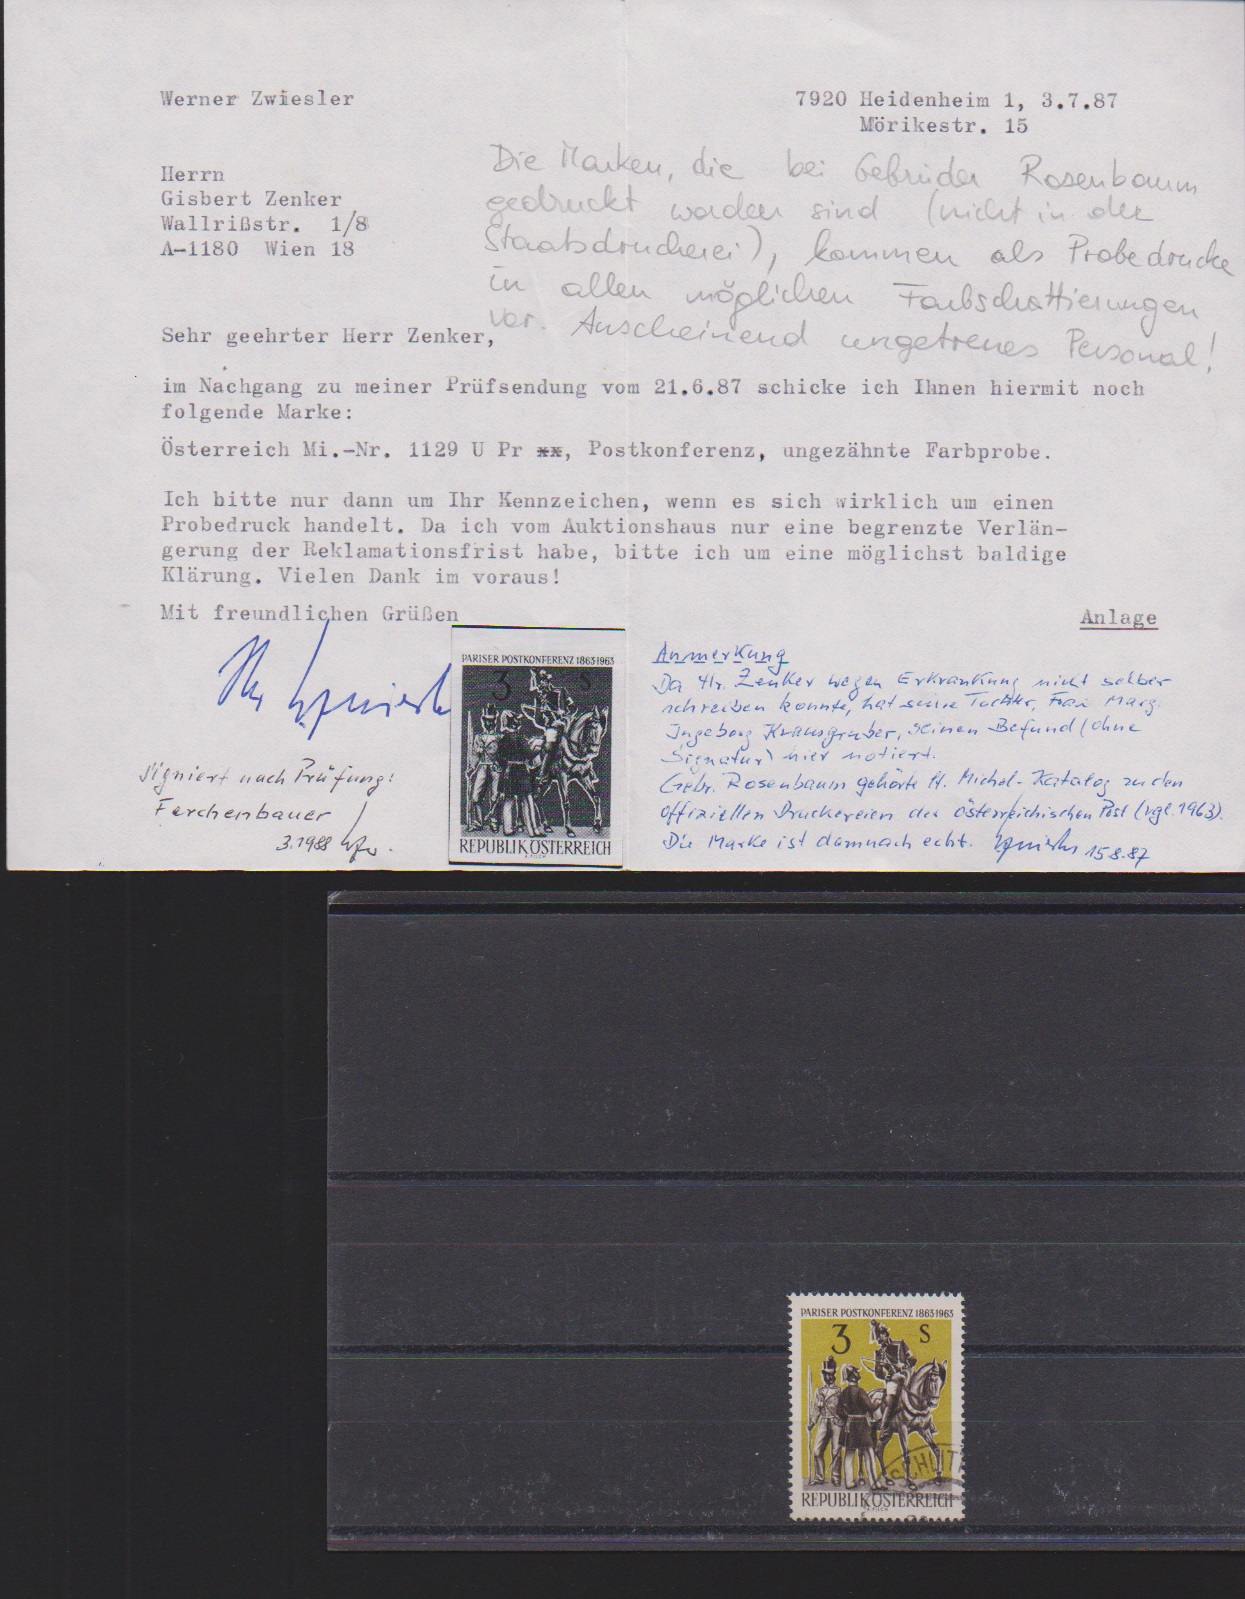 Werner Zwiesler
7920 Heidenheim 1, 3.7.87
Mörikestr. 15
Herrn
Gisbert Zenker
Wallrißstr. 1/8
A-1180 Wien 18
Die Marken, die bei Gebrüder Rosenbaum
gedruckt worden sind (nicht in der
Staatsdruckerei), kommen als Probedrucke
in allen möglichen Farbschattierungen
vor. Anscheinend ungetreues Personal!
Sehr geehrter Herr Zenker,
im Nachgang zu meiner Prüfsendung vom 21.6.87 schicke ich Ihnen hiermit noch
folgende Marke:
Österreich Mi.-Nr. 1129 U Pr **, Postkonferenz, ungezähnte Farbprobe.
Ich bitte nur dann um Ihr Kennzeichen, wenn es sich wirklich um einen
Probedruck handelt. Da ich vom Auktionshaus nur eine begrenzte Verlän-
gerung der Reklamationsfrist habe, bitte ich um eine möglichst baldige
Klärung. Vielen Dank im voraus!
Mit freundlichen Grüßen
Anlage
Signiert nach Prüfung:
Ferchenbauer
3.1988
PARISER POSTKONFERENZ 1863 1963
3 S
REPUBLIK ÖSTERREICH
Anmerkung
Da Hr. Zenker wegen Erkrankung nicht selber
schreiben konnte, hat seine Tochter, Frau Marg.
Ingeborg Krausgruber, seinen Befund (ohne
Signatur) hier notiert.
Gebr. Rosenbaum gehörte lt. Michel-Katalog zu den
offiziellen Druckereien der österreichischen Post (vgl. 1963).
Die Marke ist demnach echt.
15.8.87
PARISER POSTKONFERENZ 1863 1963
3 S
SCHLIT
REPUBLIK ÖSTERREICH